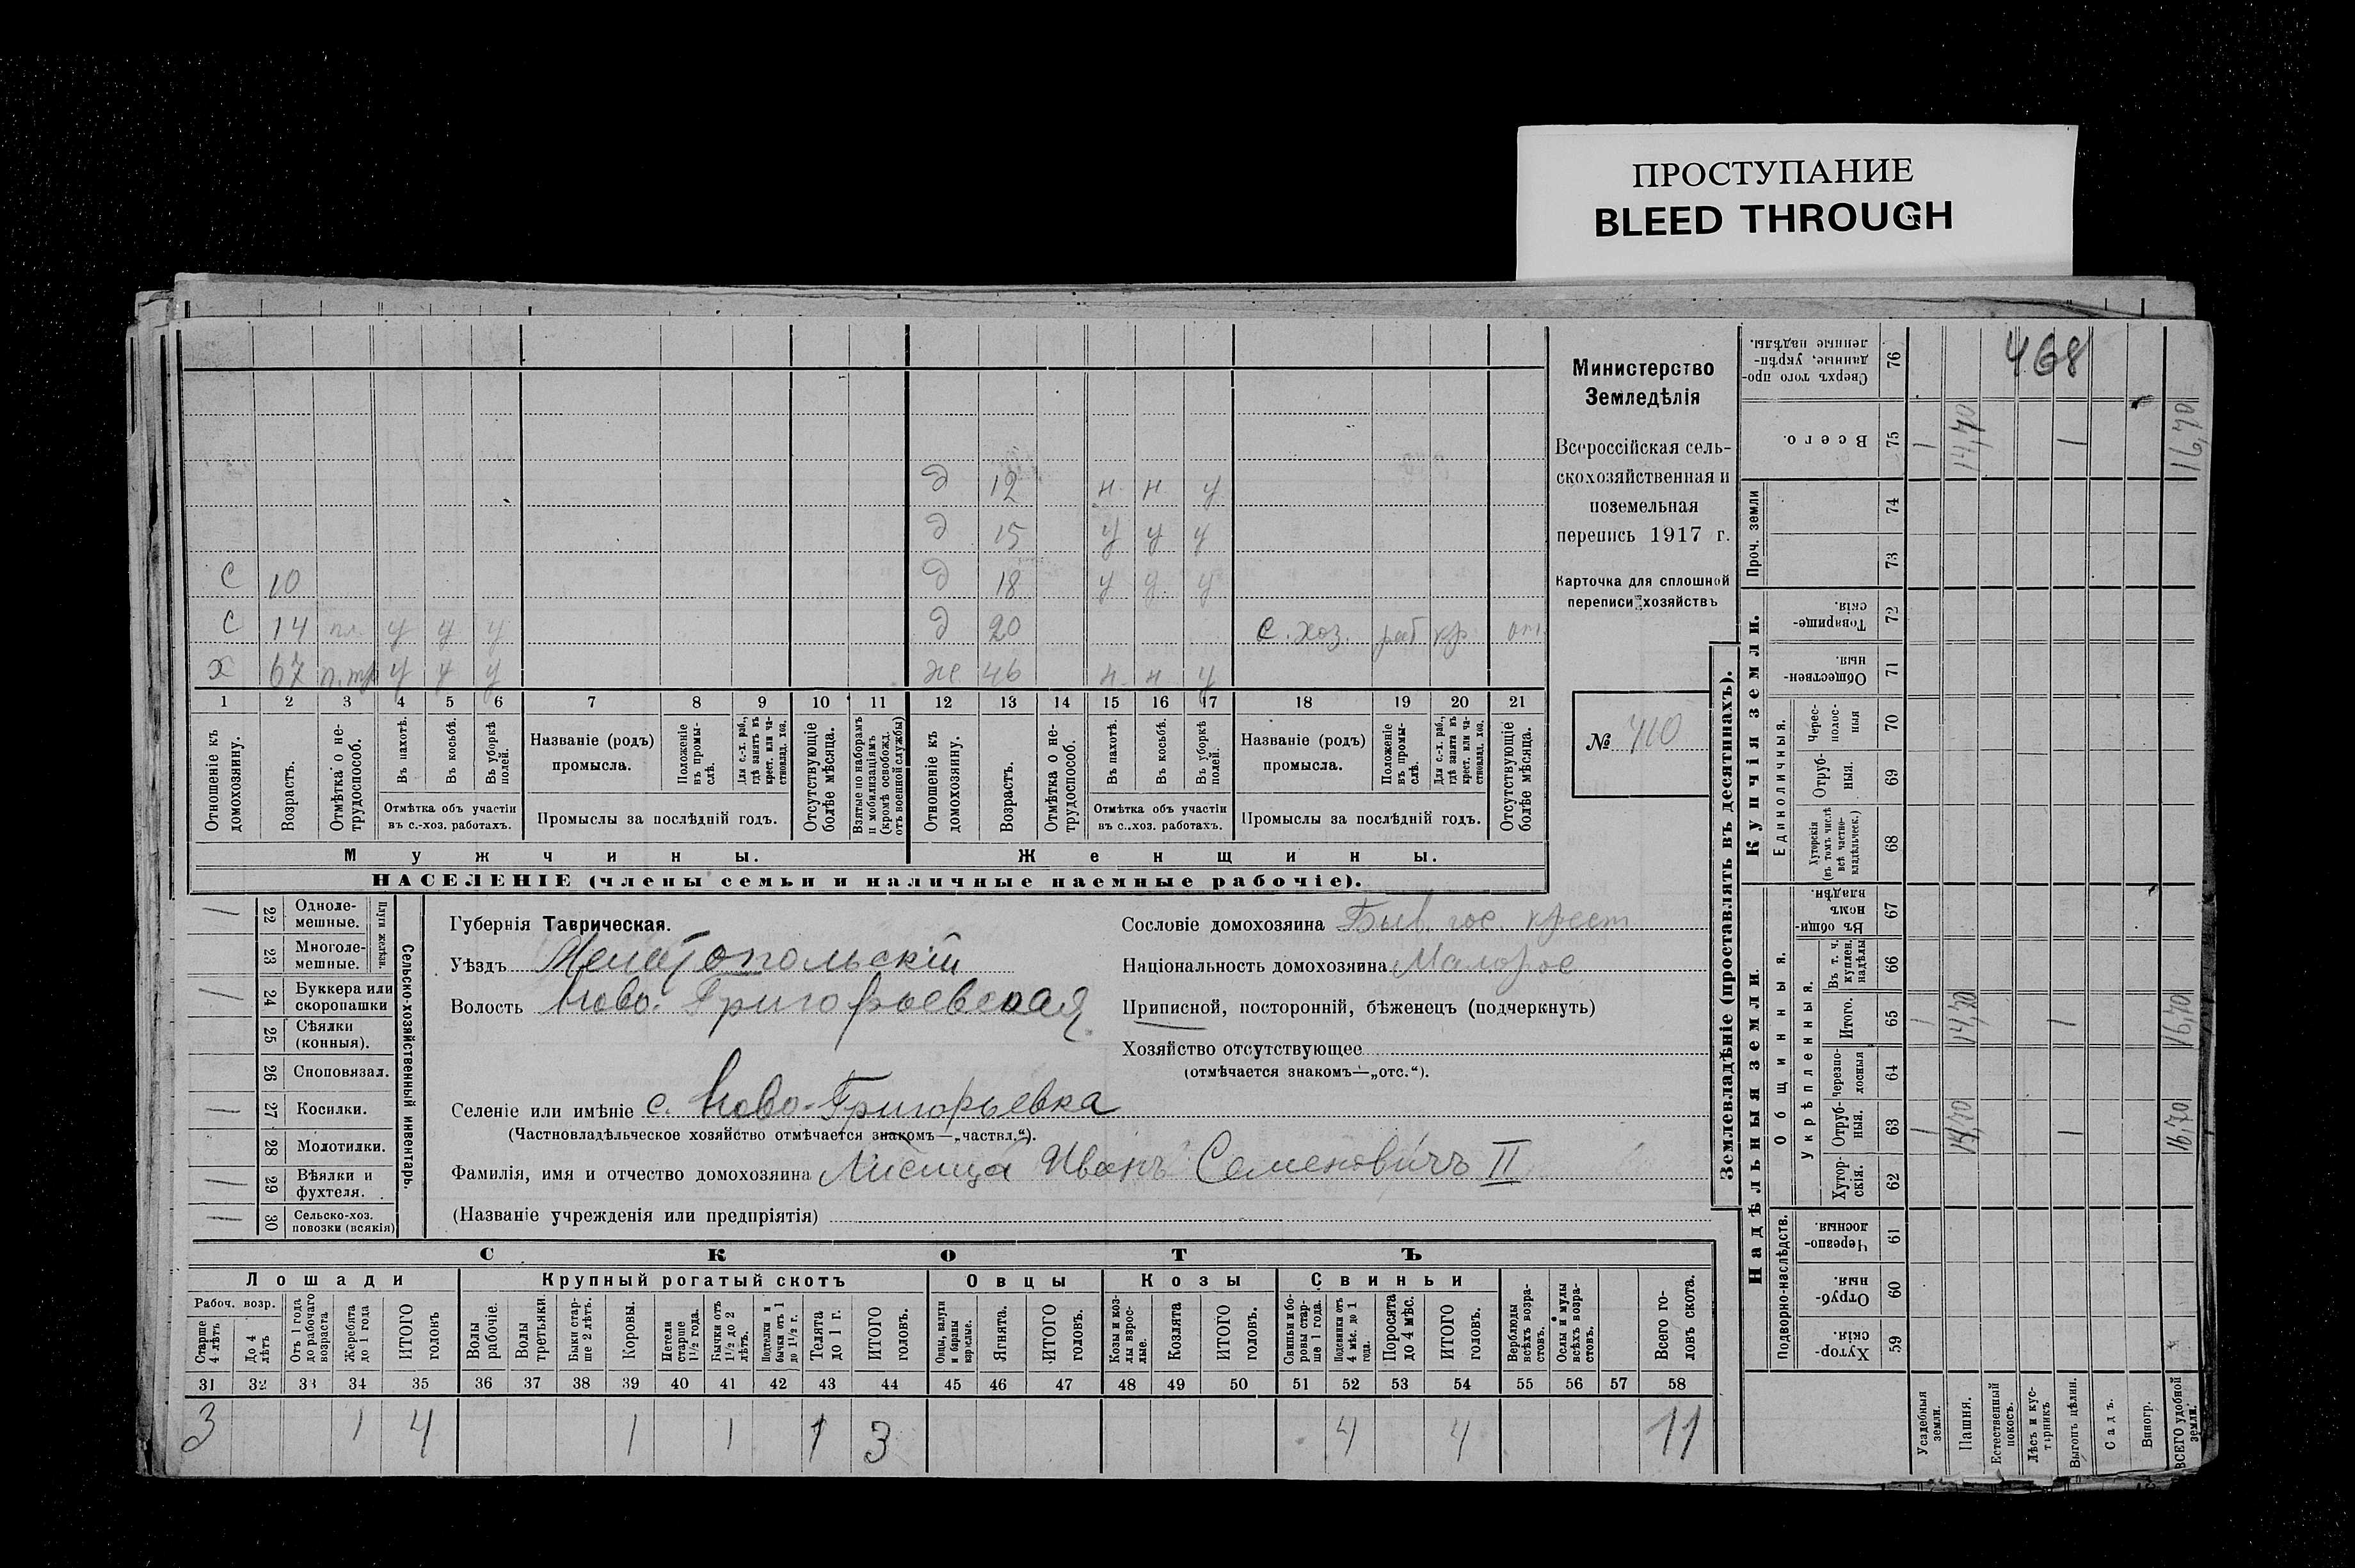 ПРОСТУПАНИЕ
BLEED THROUGH
468
Министерство
Земледѣлія
Всероссійская сель-
скохозяйственная и
поземельная
перепись 1917 г.
Карточка для сплошной
переписи хозяйствъ
№ 410
д 12 н н у
д 15 у у у
С 10 д 18 у у у
С 14 у у у д 20 с. хоз. раб кр отс.
х 67 у у у ж 46 н н у
1 2 3 4 5 6 7 8 9 10 11 12 13 14 15 16 17 18 19 20 21
Отношеніе къ домохозяину.
Возрастъ.
Отмѣтка о не-трудоспособ.
Въ пахотѣ.
Въ косьбѣ.
Въ уборкѣ полей.
Отмѣтка объ участіи
въ с.-хоз. работахъ.
Названіе (родъ)
промысла.
Положеніе въ промы-слѣ.
Для с.-х. раб., гдѣ занятъ въ крест. или ча-стновлад. хоз.
Промыслы за послѣдній годъ.
Отсутствующіе болѣе мѣсяца.
Взятые по наборамъ и мобилизаціямъ (кромѣ освобожд. отъ военной службы)
Отношеніе къ домохозяину.
Возрастъ.
Отмѣтка о не-трудоспособ.
Въ пахотѣ.
Въ косьбѣ.
Въ уборкѣ полей.
Отмѣтка объ участіи
въ с..хоз. работахъ.
Названіе (родъ)
промысла.
Положеніе въ промы-слѣ.
Для с.-х. раб., гдѣ занята въ крест. или ча-стновлад. хоз.
Промыслы за послѣдній годъ.
Отсутствующіе болѣе мѣсяца.
Мужчины. Женщины.
НАСЕЛЕНІЕ (члены семьи и наличные наемные рабочіе).
Сельско-хозяйственный инвентарь.
Плуги желѣзн.
1 22 Одноле-мешные.
23 Многоле-мешные.
1 24 Буккера или скоропашки
25 Сѣялки (конныя).
26 Сноповязал.
1 27 Косилки.
28 Молотилки.
1 29 Вѣялки и фухтеля.
1 30 Сельско-хоз. повозки (всякія)
Губернія Таврическая.
Уѣздъ Мелитопольскій
Волость Ново-Григорьевская
Селеніе или имѣніе с. Ново-Григорьевка
(Частновладѣльческое хозяйство отмѣчается знакомъ—„частвл.“).
Фамилія, имя и отчество домохозяина Лисица Иванъ Семеновичъ II
(Названіе учрежденія или предпріятія)
Сословіе домохозяина Быв. гос. крест
Національность домохозяина Малорос
Приписной, посторонній, бѣженецъ (подчеркнуть)
Хозяйство отсутствующее
(отмѣчается знакомъ—„отс.“).
СКОТЪ
Лошади Крупный рогатый скотъ Овцы Козы Свиньи
Рабоч. возр.
Старше 4 лѣтъ
До 4 лѣтъ
Отъ 1 года до рабочаго возраста
Жеребята до 1 года
ИТОГО головъ
Волы рабочіе.
Волы третьяки.
Быки стар-ше 2 лѣтъ.
Коровы.
Нетели старше 1½ года.
Бычки отъ 1½ до 2 лѣтъ.
Подтелки и бычки отъ 1 до 1½ г.
Телята до 1 г.
ИТОГО головъ.
Овцы, валухи и бараны взрослые.
Ягнята.
ИТОГО головъ.
Козы и коз-лы взрос-лые.
Козлята
ИТОГО головъ.
Свиньи и бо-ровы стар-ше 1 года.
Подсвинки отъ 4 мѣс. до 1 года.
Поросята до 4 мѣс.
ИТОГО головъ.
Верблюды всѣхъ возра-стовъ.
Ослы и мулы всѣхъ возра-стовъ.
Всего го-ловъ скота.
31 32 33 34 35 36 37 38 39 40 41 42 43 44 45 46 47 48 49 50 51 52 53 54 55 56 57 58
3 1 4 1 1 1 3 4 4 11
Землевладѣніе (проставлять въ десятинахъ).
Надѣльныя земли. Купчія земли.
Подворно-наслѣдств.
Общинныя.
Укрѣпленныя.
Единоличныя.
Проч. земли
Сверхъ того про-данные, укрѣп-ленные надѣлы. 76
Всего. 75 1 14,70 1 16,70
74
73
Товарище-скія. 72
Обществен-ныя 71
Черес-полос-ныя 70
Отруб-ныя. 69
Хуторскія (въ томъ числѣ всѣ частно-владѣльческ.) 68
Въ общи-номъ владѣн. 67
Въ т. ч. куплен. надѣлы 66
Итого. 65 1 14,70 1 16,70
Черезпо-лосныя 64
Отруб-ныя. 63 1 14,70 1 16,70
Хутор-скія. 62
Черезпо-лосныя. 61
Отруб-ныя. 60
Хутор-скія. 59
Усадебныя земли.
Пашня.
Естественный покосъ.
Лѣсъ и кус-тарникъ
Выгонъ цѣлин.
Садъ.
Виногр.
ВСЕГО удобной земли.